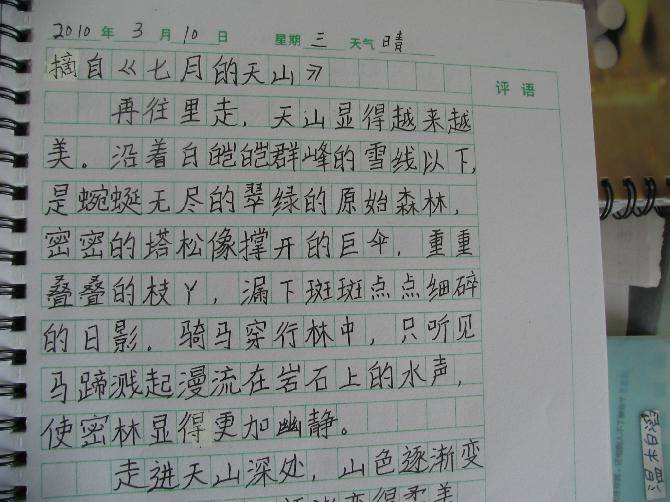 2010 年 3 月 10 日 星期 三 天气 晴
摘自《七月的天山》
评语
再往里走，天山显得越来越
美。沿着白皑皑群峰的雪线以下，
是蜿蜒无尽的翠绿的原始森林，
密密的塔松像撑开的巨伞，重重
叠叠的枝丫，漏下斑斑点点细碎
的日影。骑马穿行林中，只听见
马蹄溅起漫流在岩石上的水声，
使密林显得更加幽静。
走进天山深处，山色逐渐变